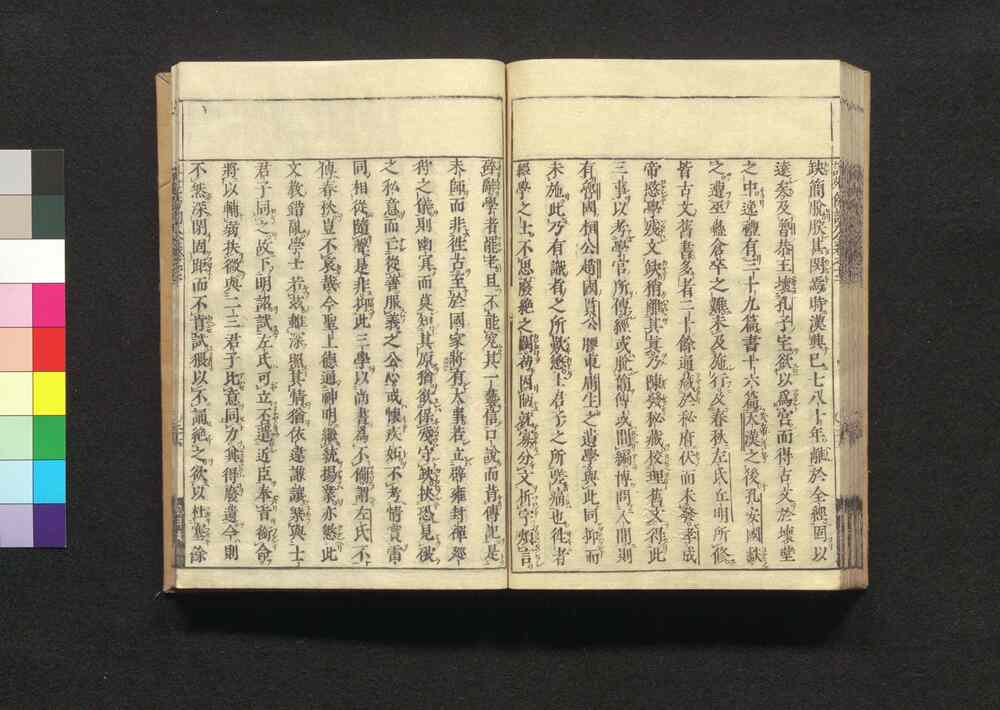 缺簡脫朕甚閔焉時漢興已七八十年離於全經固以
遠矣及魯恭王壞孔子宅欲以爲宮而得古文於壞壁
之中逸禮有三十九篇書十六篇天漢之後孔安國獻
之遭巫蠱倉卒之難未及施行及春秋左氏丘明所修
皆古文舊書多者二十餘通藏於秘府伏而未發孝成
帝愍學殘文缺稍離其真乃陳發秘藏校理舊文得此
三事以考學官所傳經或脫簡傳或間編博問人間則
有魯國桓公趙國貫公膠東庸生之遺學與此同抑而
未施此乃有識者之所歎愍士君子之所嗟痛也往者
綴學之士不思廢絕之闕苟因陋就寡分文析字煩言
碎辭學者罷老且不能究其一藝信口說而背傳記是
末師而非往古至於國家將有大事若立辟雍封禪巡
狩之儀則幽冥而莫知其原猶欲保殘守缺挾恐見破
之私意而亡從善服義之公心或懷疾妬不考情實雷
同相從隨聲是非抑此三學以尚書爲不備謂左氏不
傳春秋豈不哀哉今聖上德通神明繼統揚業亦愍此
文敎錯亂學士若茲雖深照其情猶依違謙讓樂與士
君子同之故下明詔試左氏可立不遣近臣奉旨銜命
將以輔弱扶微與二三君子比意同力冀得廢遺今則
不然深閉固距而不肯試猥以不誦絕之欲以杜塞餘